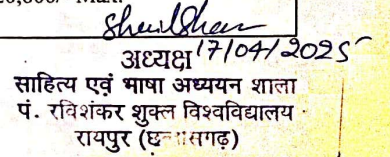 अध्यक्ष 17/04/2025
साहित्य एवं भाषा अध्ययन शाला
पं. रविशंकर शुक्ल विश्वविद्यालय
रायपुर